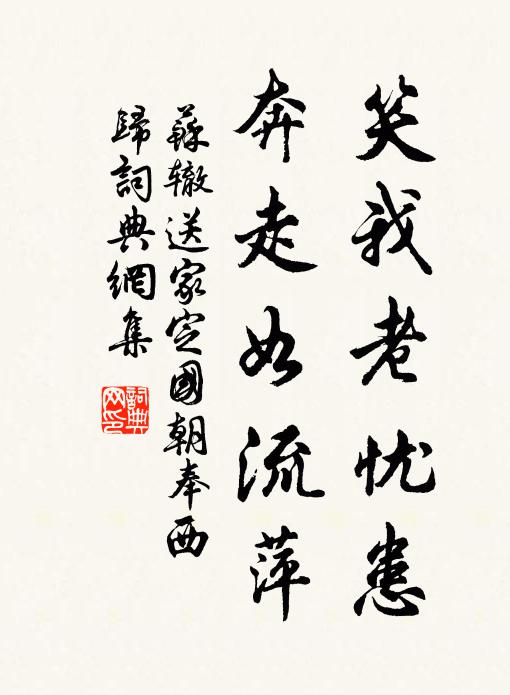 笑我老忧患
奔走如流萍
蘇辙送家定國朝奉西
歸詞典網集
詞典
网印